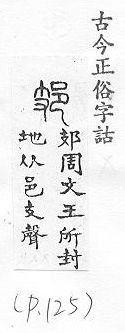 古今正俗字詁
𨙸周文王所封
地从邑支聲
(P.125)